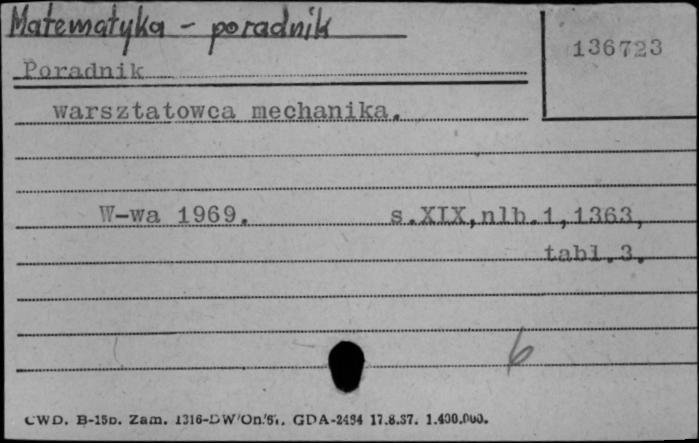 Matematyka - poradnik
136723
Poradnik
warsztatowca mechanika.
W-wa 1969. s.XIX,nlb.1,1363,
tabl.3.
6
CWD. B-15b. Zam. 1316-DW/On. GDA-2434 17.8.57. 1.400.000.